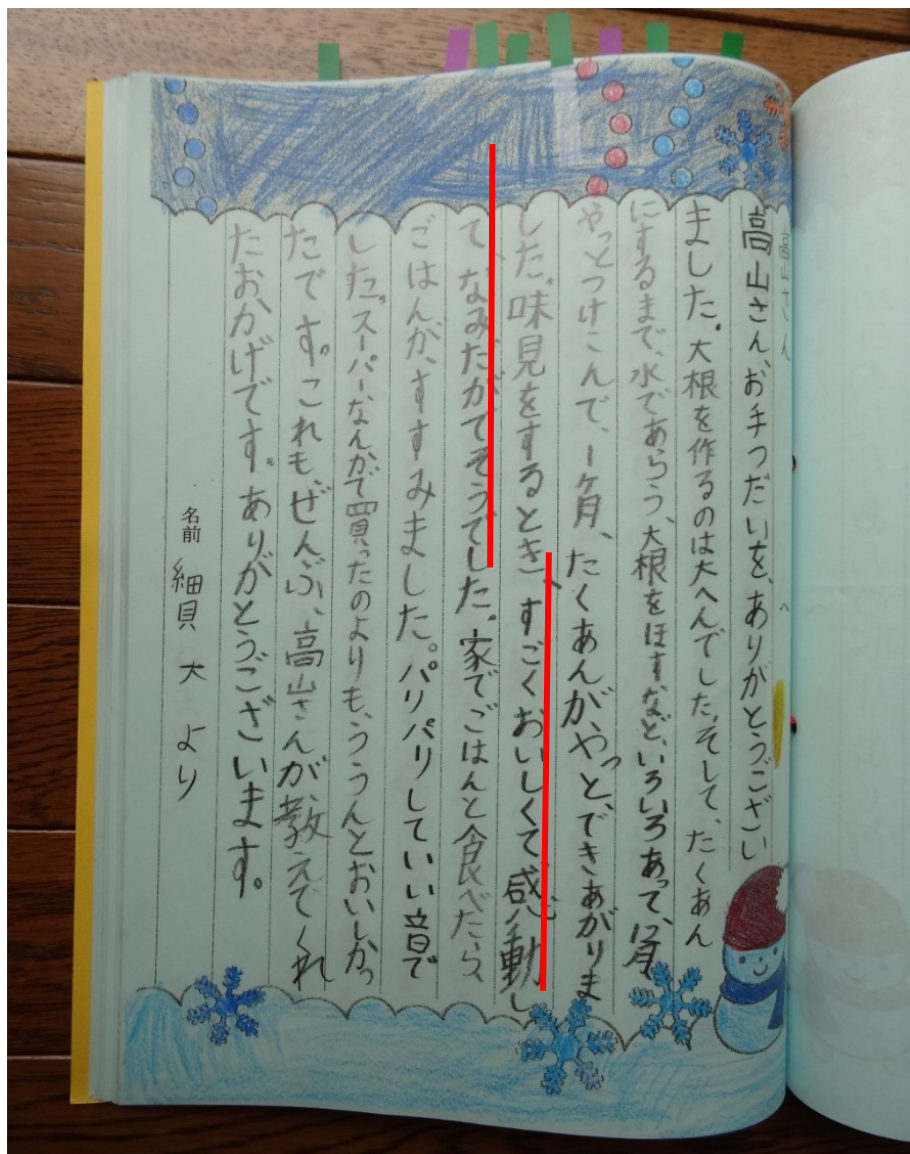 高山さんへ
高山さん、お手つだいを、ありがとうござい
ました。大根を作るのは大へんでした。そして、たくあん
にするまで、水であらう、大根をほすなど、いろいろあって、12月
やっとつけこんで、1ヶ月、たくあんが、やっと、できあがりま
した。味見をするとき、すごくおいしくて、感動し
て、なみだがでそうでした。家でごはんと食べたら、
ごはんが、すすみました。パリパリしていい音で
した。スーパーなんかで買ったのよりも、ううんとおいしかっ
たです。これも、ぜんぶ、高山さんが、教えてくれ
たおかげです。ありがとうございます。
名前 細貝 大 より